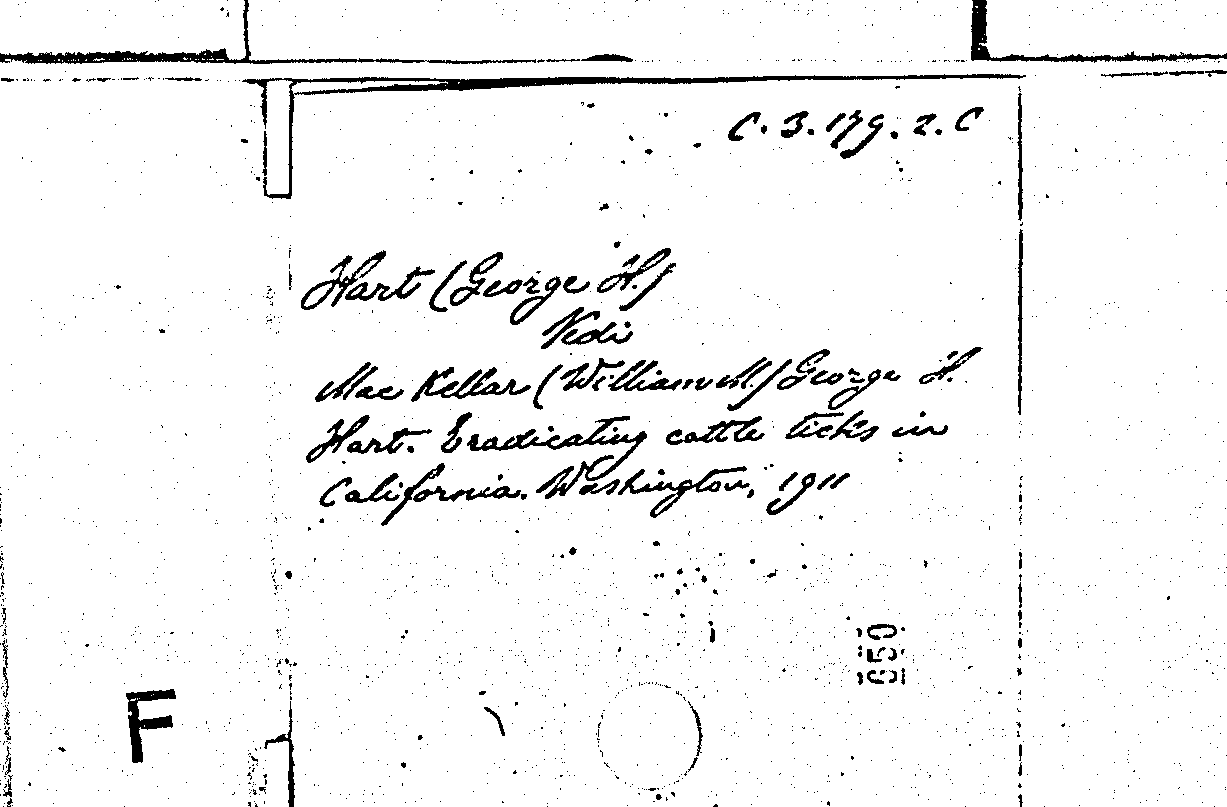 C. 3. 179. 2. C
Hart (George H.)
Vedi
Mac Kellar (William M.) George H.
Hart. Eradicating cattle ticks in
California. Washington, 1911
650
F